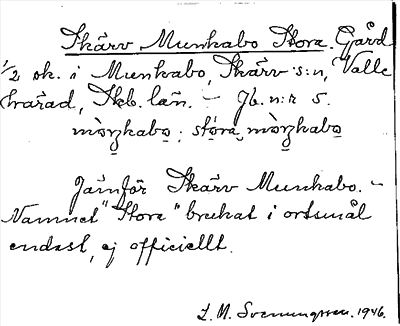 Skärv Munkabo Stora. Gård
1/2 ok. i Munkabo, Skärv s:n, Valle
härad, Skb. län. - Jb. n:r 5.
mòŋkabo ; stóra mòŋkabo
Jämför Skärv Munkabo. -
Namnet "Stora" brukat i ortsmål
endast, ej officiellt.
L. M. Svenungsson. 1946.